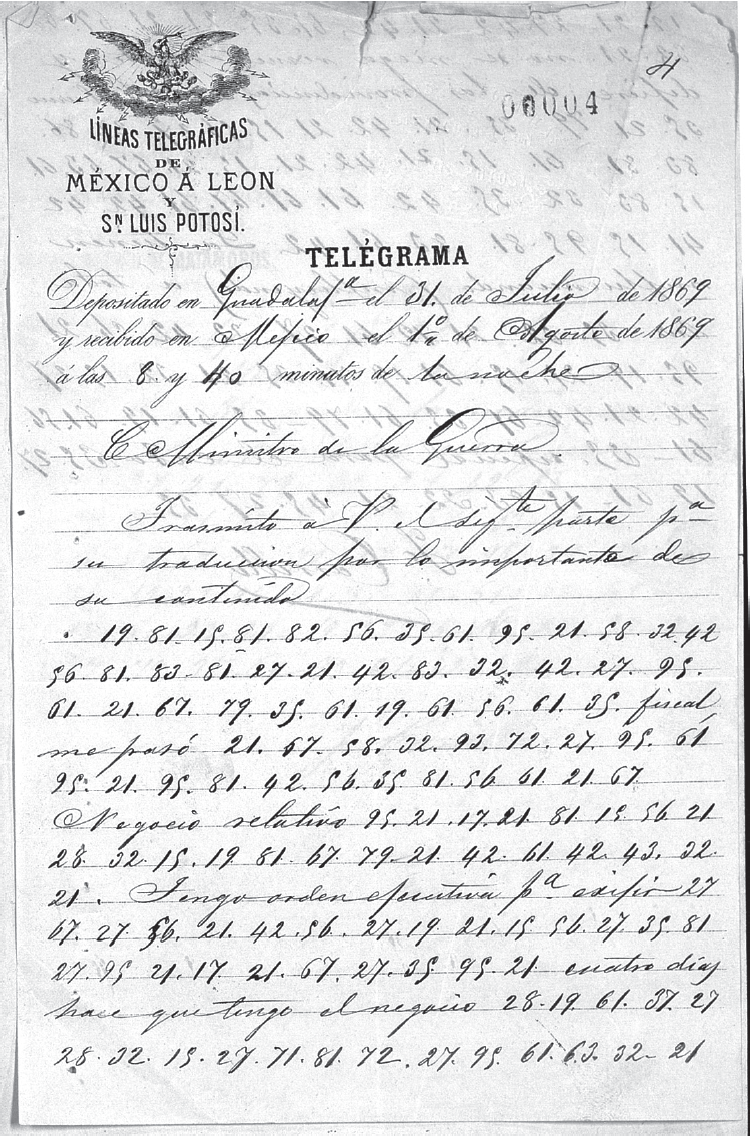 LÍNEAS TELEGRÁFICAS
DE
MÉXICO Á LEON
Y
Sn LUIS POTOSÍ.
4
00004
TELÉGRAMA
Depositado en Guadalaja el 31. de Julio de 1869
y recibido en Mejico el 1o de Agosto de 1869
á las 8 y 40 minutos de la noche
C Ministro de la Guerra
Trasmito á V. el sigte parte pa
su traduccion por lo importante de
su contenido
19. 81. 15. 81. 82. 56. 35. 61. 95. 21. 58. 32. 42
56. 81. 83. 81. 27. 21. 42. 83. 32. 42. 27. 95.
61. 21. 67. 79. 35. 61. 19. 61. 56. 61. 35. fiscal
me pasó 21. 67. 58. 32. 93. 72. 27. 95. 61
95. 21. 95. 81. 42. 56. 35. 81. 56. 61. 21. 67
Negocio relativo 95. 21. 17. 21. 81. 15. 56. 21
28. 32. 15. 19. 81. 67. 79. 21. 42. 61. 42. 43. 32.
21. Tengo orden ejecutiva pa exijir 27
67. 27. 56. 21. 42. 56. 27. 19. 21. 15. 56. 27. 35. 81
27. 95. 21. 17. 21. 67. 27. 35. 95. 21 cuatro dias
hace que tengo el negocio 28. 19. 61. 37. 27
28. 32. 15. 27. 71. 81. 72. 27. 95. 61. 63. 32. 21